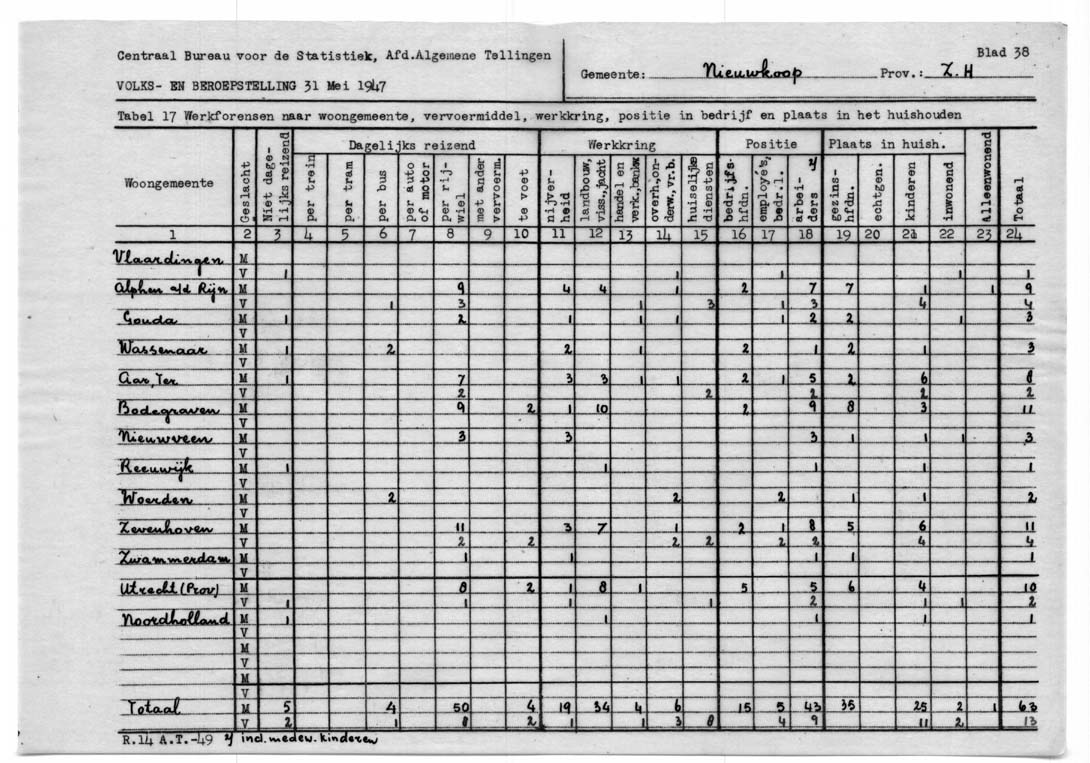 Centraal Bureau voor de Statistiek, Afd.Algemene Tellingen
Blad 38
Gemeente: Nieuwkoop Prov.: Z.H
VOLKS- EN BEROEPSTELLING 31 Mei 1947
Tabel 17 Werkforensen naar woongemeente, vervoermiddel, werkkring, positie in bedrijf en plaats in het huishouden
Woongemeente Geslacht Niet dage-lijks reizend Dagelijks reizend Werkkring Positie Plaats in huish. Alleenwonend Totaal
per trein per tram per bus per auto of motor per rij-wiel met ander vervoerm. te voet nijver-heid landbouw, viss.,jacht handel en verk.,bankw overh.on-derw.,vr.b. huiselijke diensten bedrijfs-hfdn. employé's, bedr.l. arbei-ders y gezins-hfdn. echtgen. kinderen inwonend
1 2 3 4 5 6 7 8 9 10 11 12 13 14 15 16 17 18 19 20 21 22 23 24
Vlaardingen M
V 1 1 1 1 1
Alphen a/d Rijn M 9 4 4 1 2 7 7 1 1 9
V 1 3 1 3 1 3 4 4
Gouda M 1 2 1 1 1 1 2 2 1 3
V
Wassenaar M 1 2 2 1 2 1 2 1 3
V
Aar, Ter M 1 7 3 3 1 1 2 1 5 2 6 8
V 2 2 2 2 2
Bodegraven M 9 2 1 10 2 9 8 3 11
V
Nieuwveen M 3 3 3 1 1 1 3
V
Reeuwijk M 1 1 1 1 1
V
Woerden M 2 2 2 1 1 2
V
Zevenhoven M 11 3 7 1 2 1 8 5 6 11
V 2 2 2 2 2 2 4 4
Zwammerdam M 1 1 1 1 1
V
Utrecht (Prov) M 8 2 1 8 1 5 5 6 4 10
V 1 1 1 1 2 1 1 2
Noordholland M 1 1 1 1 1
V
M
V
M
V
Totaal M 5 4 50 4 19 34 4 6 15 5 43 35 25 2 1 63
V 2 1 8 2 1 1 3 8 4 9 11 2 13
R.14 A.T.-49 y incl.medew.kinderen